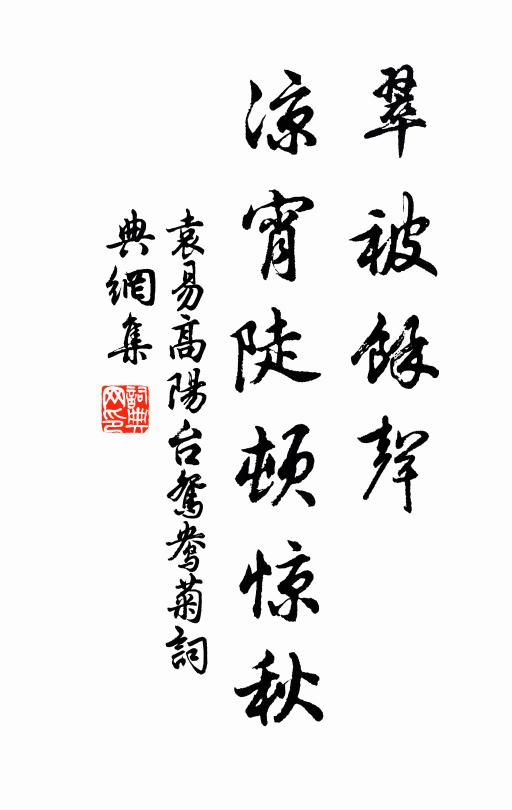 翠被餘聲
凉宵陡頓惊秋
袁易高陽台鴛鴦菊詞
典網集
詞典
网印